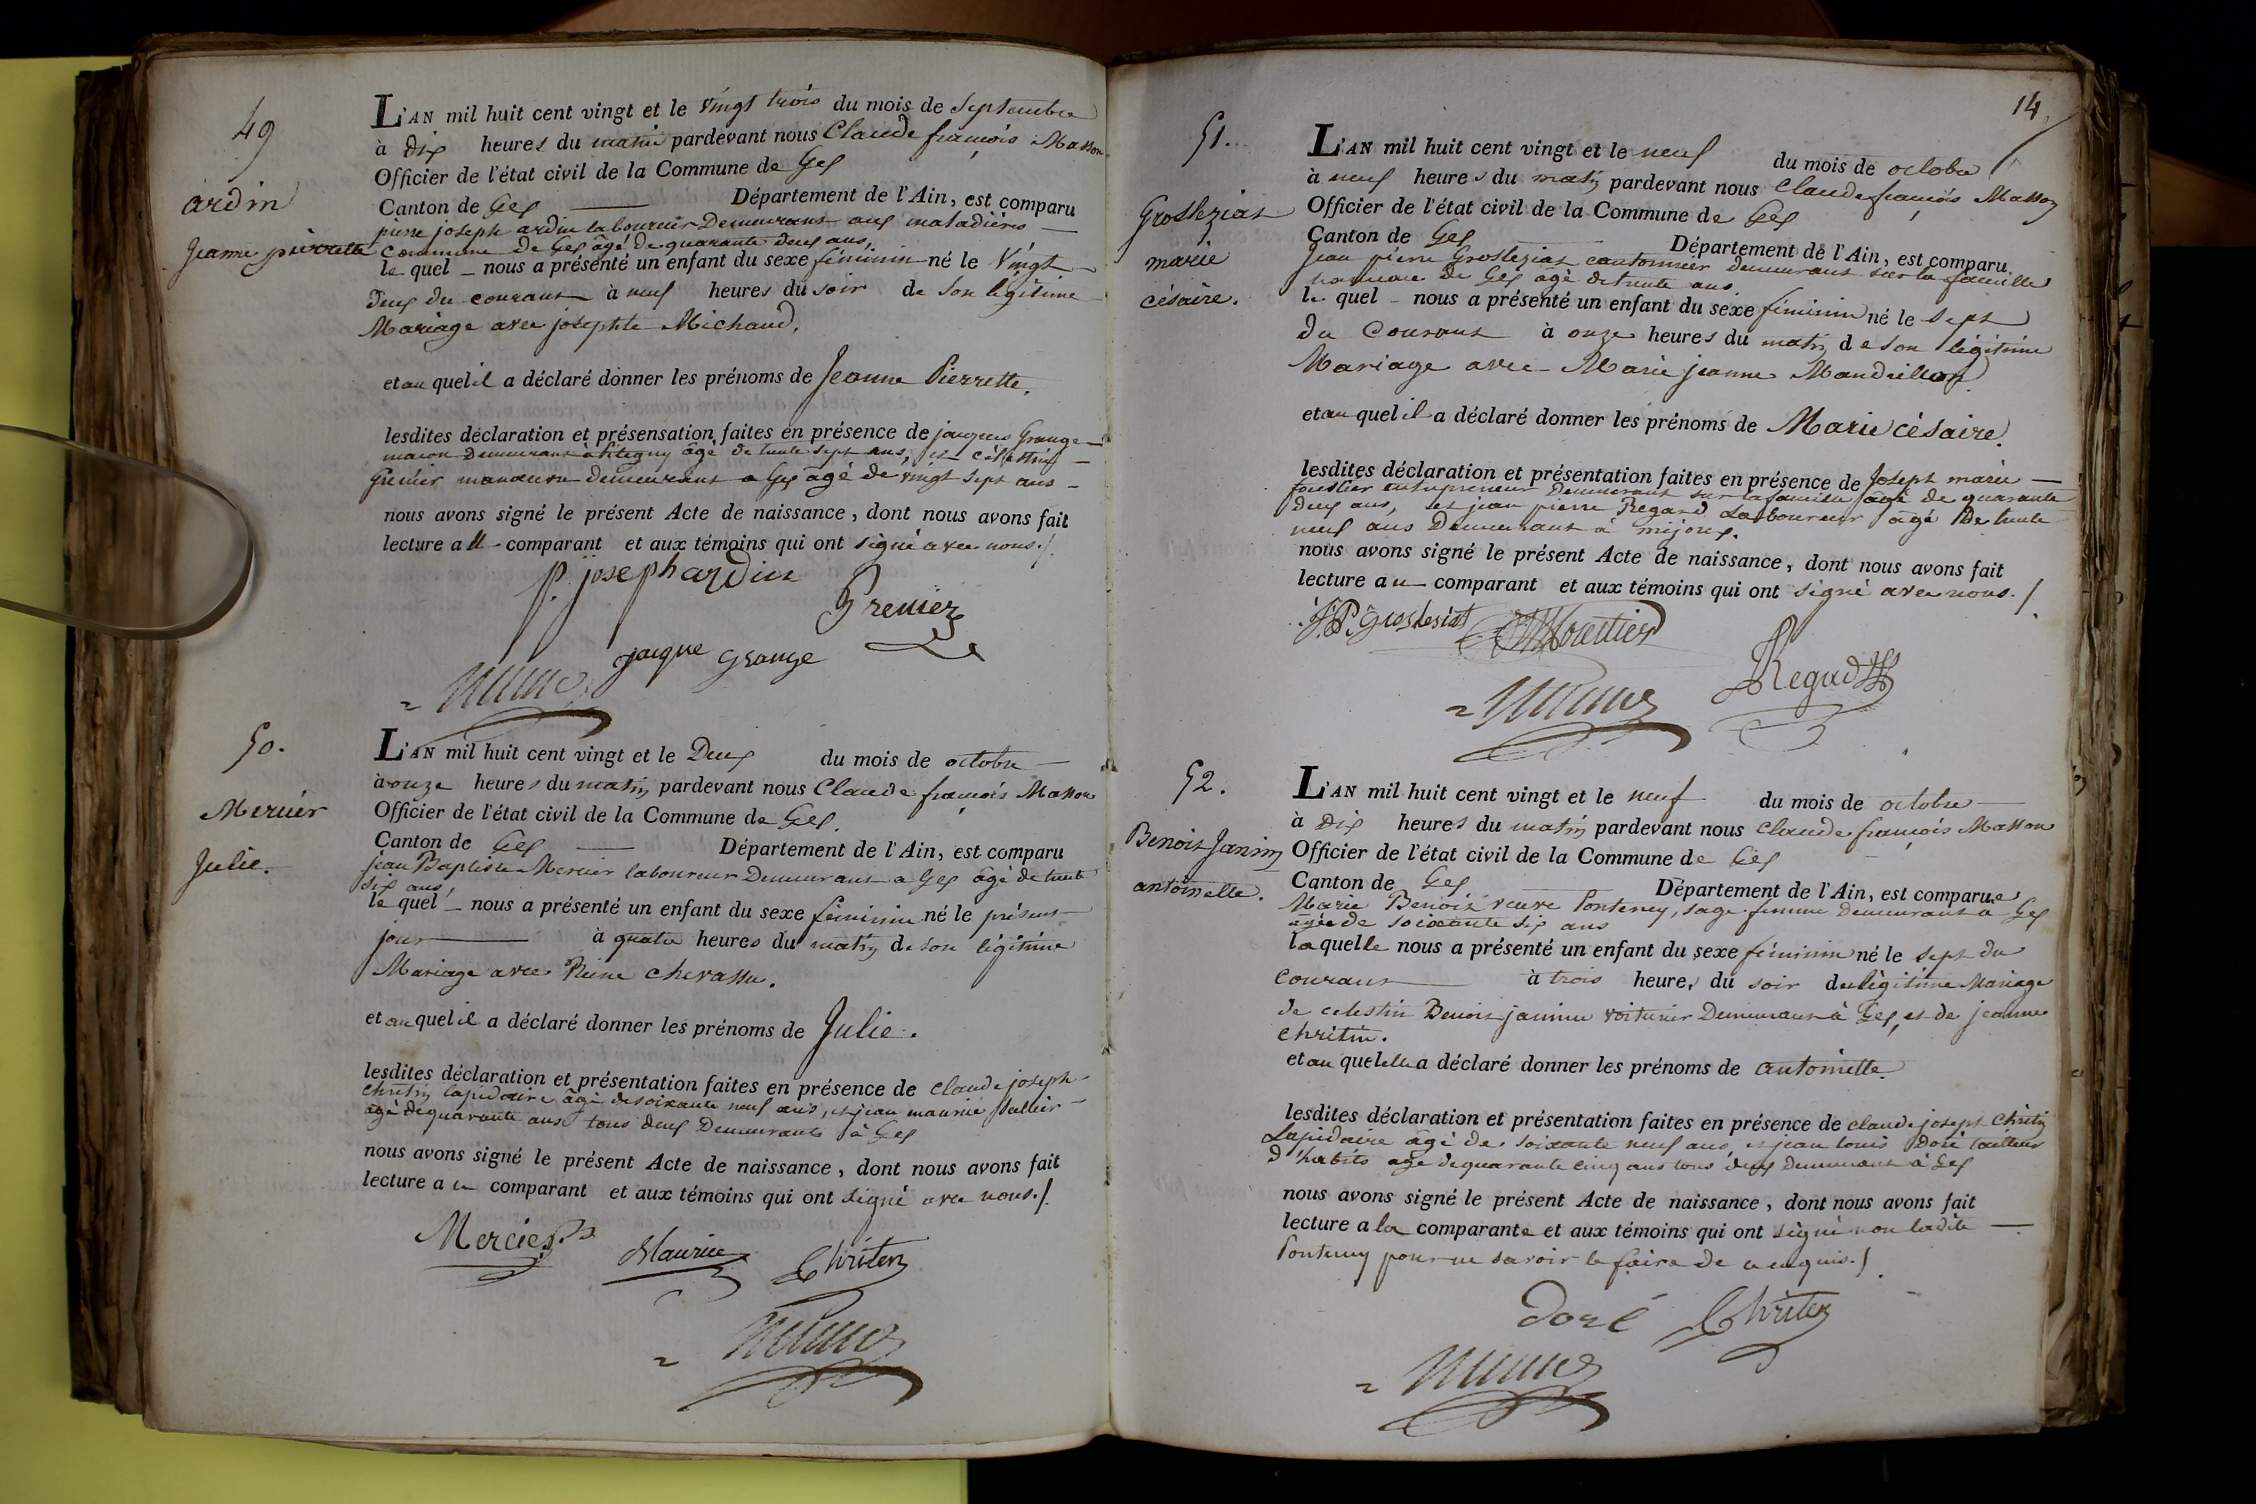 49
ardin
Jeanne pierrette
L'AN mil huit cent vingt et le vingt trois du mois de Septembre
à dix heures du matin pardevant nous Claude françois Masson
Officier de l'état civil de la Commune de Gex
Canton de Gex Département de l'Ain, est comparu
pierre joseph ardin laboureur Demeurant aux maladières
commune de Gex âgé de quarante deux ans,
le quel nous a présenté un enfant du sexe féminin né le Vingt
Deux du courant à neuf heures du soir de son légitime
Mariage avec josephte Michaud,
et au quel il a déclaré donner les prénoms de Jeanne Pierrette.
lesdites déclaration et présensation faites en présence de jacques Grange
macon Demeurant à age de trente sept ans, et célestin
Grenier manoeuvre demeurant a Gex âgé de vingt sept ans
nous avons signé le présent Acte de naissance, dont nous avons fait
lecture au comparant et aux témoins qui ont signé avec nous./.
p. joseph ardin
Grenier
jacque Grange
50.
Mercier
Julie.
L'AN mil huit cent vingt et le Deux du mois de octobre
à onze heures du matin pardevant nous Claude françois Masson
Officier de l'état civil de la Commune de Gex.
Canton de Gex Département de l'Ain, est comparu
jean Baptiste Mercier laboureur Demeurant a Gex âgé de trente
six ans,
le quel nous a présenté un enfant du sexe féminin né le présent
jour à quatre heures du matin de son légitime
Mariage avec Reine chevassu.
et au quel il a déclaré donner les prénoms de Julie.
lesdites déclaration et présentation faites en présence de claude joseph
chritin lapidaire âgé de soixante neuf ans, et jean maurice
âgé de quarante ans tous deux Demeurants à Gex
nous avons signé le présent Acte de naissance, dont nous avons fait
lecture au comparant et aux témoins qui ont signé avec nous./.
Mercier
Maurice
Chriten
14
51.
Groslezias
marie
césaire.
L'AN mil huit cent vingt et le neuf du mois de octobre
à neuf heures du matin pardevant nous Claude françois Masson
Officier de l'état civil de la Commune de Gex
Canton de Gex Département de l'Ain, est comparu
Jean pierre Groslezias cantonnier demeurant sur la faucille
commune de Gex âgé de trente ans
le quel nous a présenté un enfant du sexe féminin né le sept
du Courant à onze heures du matin de son légitime
Mariage avec Marie jeanne Mandrillon
et au quel il a déclaré donner les prénoms de Marie césaire.
lesdites déclaration et présentation faites en présence de Joseph marie
entrepreneur demeurant sur la faucille âgé de quarante
deux ans, et jean pierre Regard Laboureur âgé de trente
neuf ans Demeurant à mijoux.
nous avons signé le présent Acte de naissance, dont nous avons fait
lecture au comparant et aux témoins qui ont signé avec nous./.
J.P. Groslesiat
Regad
52.
Benoit Janin
antoinette.
L'AN mil huit cent vingt et le neuf du mois de octobre
à dix heures du matin pardevant nous claude françois Masson
Officier de l'état civil de la Commune de Gex
Canton de Gex Département de l'Ain, est comparue
Marie Benoit veuve Ponteney, sage femme demeurant a Gex
agée de soixante six ans
laquelle nous a présenté un enfant du sexe féminin né le sept du
courant à trois heures du soir du légitime Mariage
de celestin Benoit janin voiturier Demeurant à Gex, et de jeanne
chritin.
et au quel elle a déclaré donner les prénoms de antoinette.
lesdites déclaration et présentation faites en présence de claude joseph Chritin
Lapidaire âgé de soixante neuf ans, et jean louis doré tailleur
d'habits agé de quarante cinq ans tous deux demeurant à Gex
nous avons signé le présent Acte de naissance, dont nous avons fait
lecture a la comparante et aux témoins qui ont signé non ladite
Ponteney pour ne savoir le faire de ce enquis./.
doré
Chriten